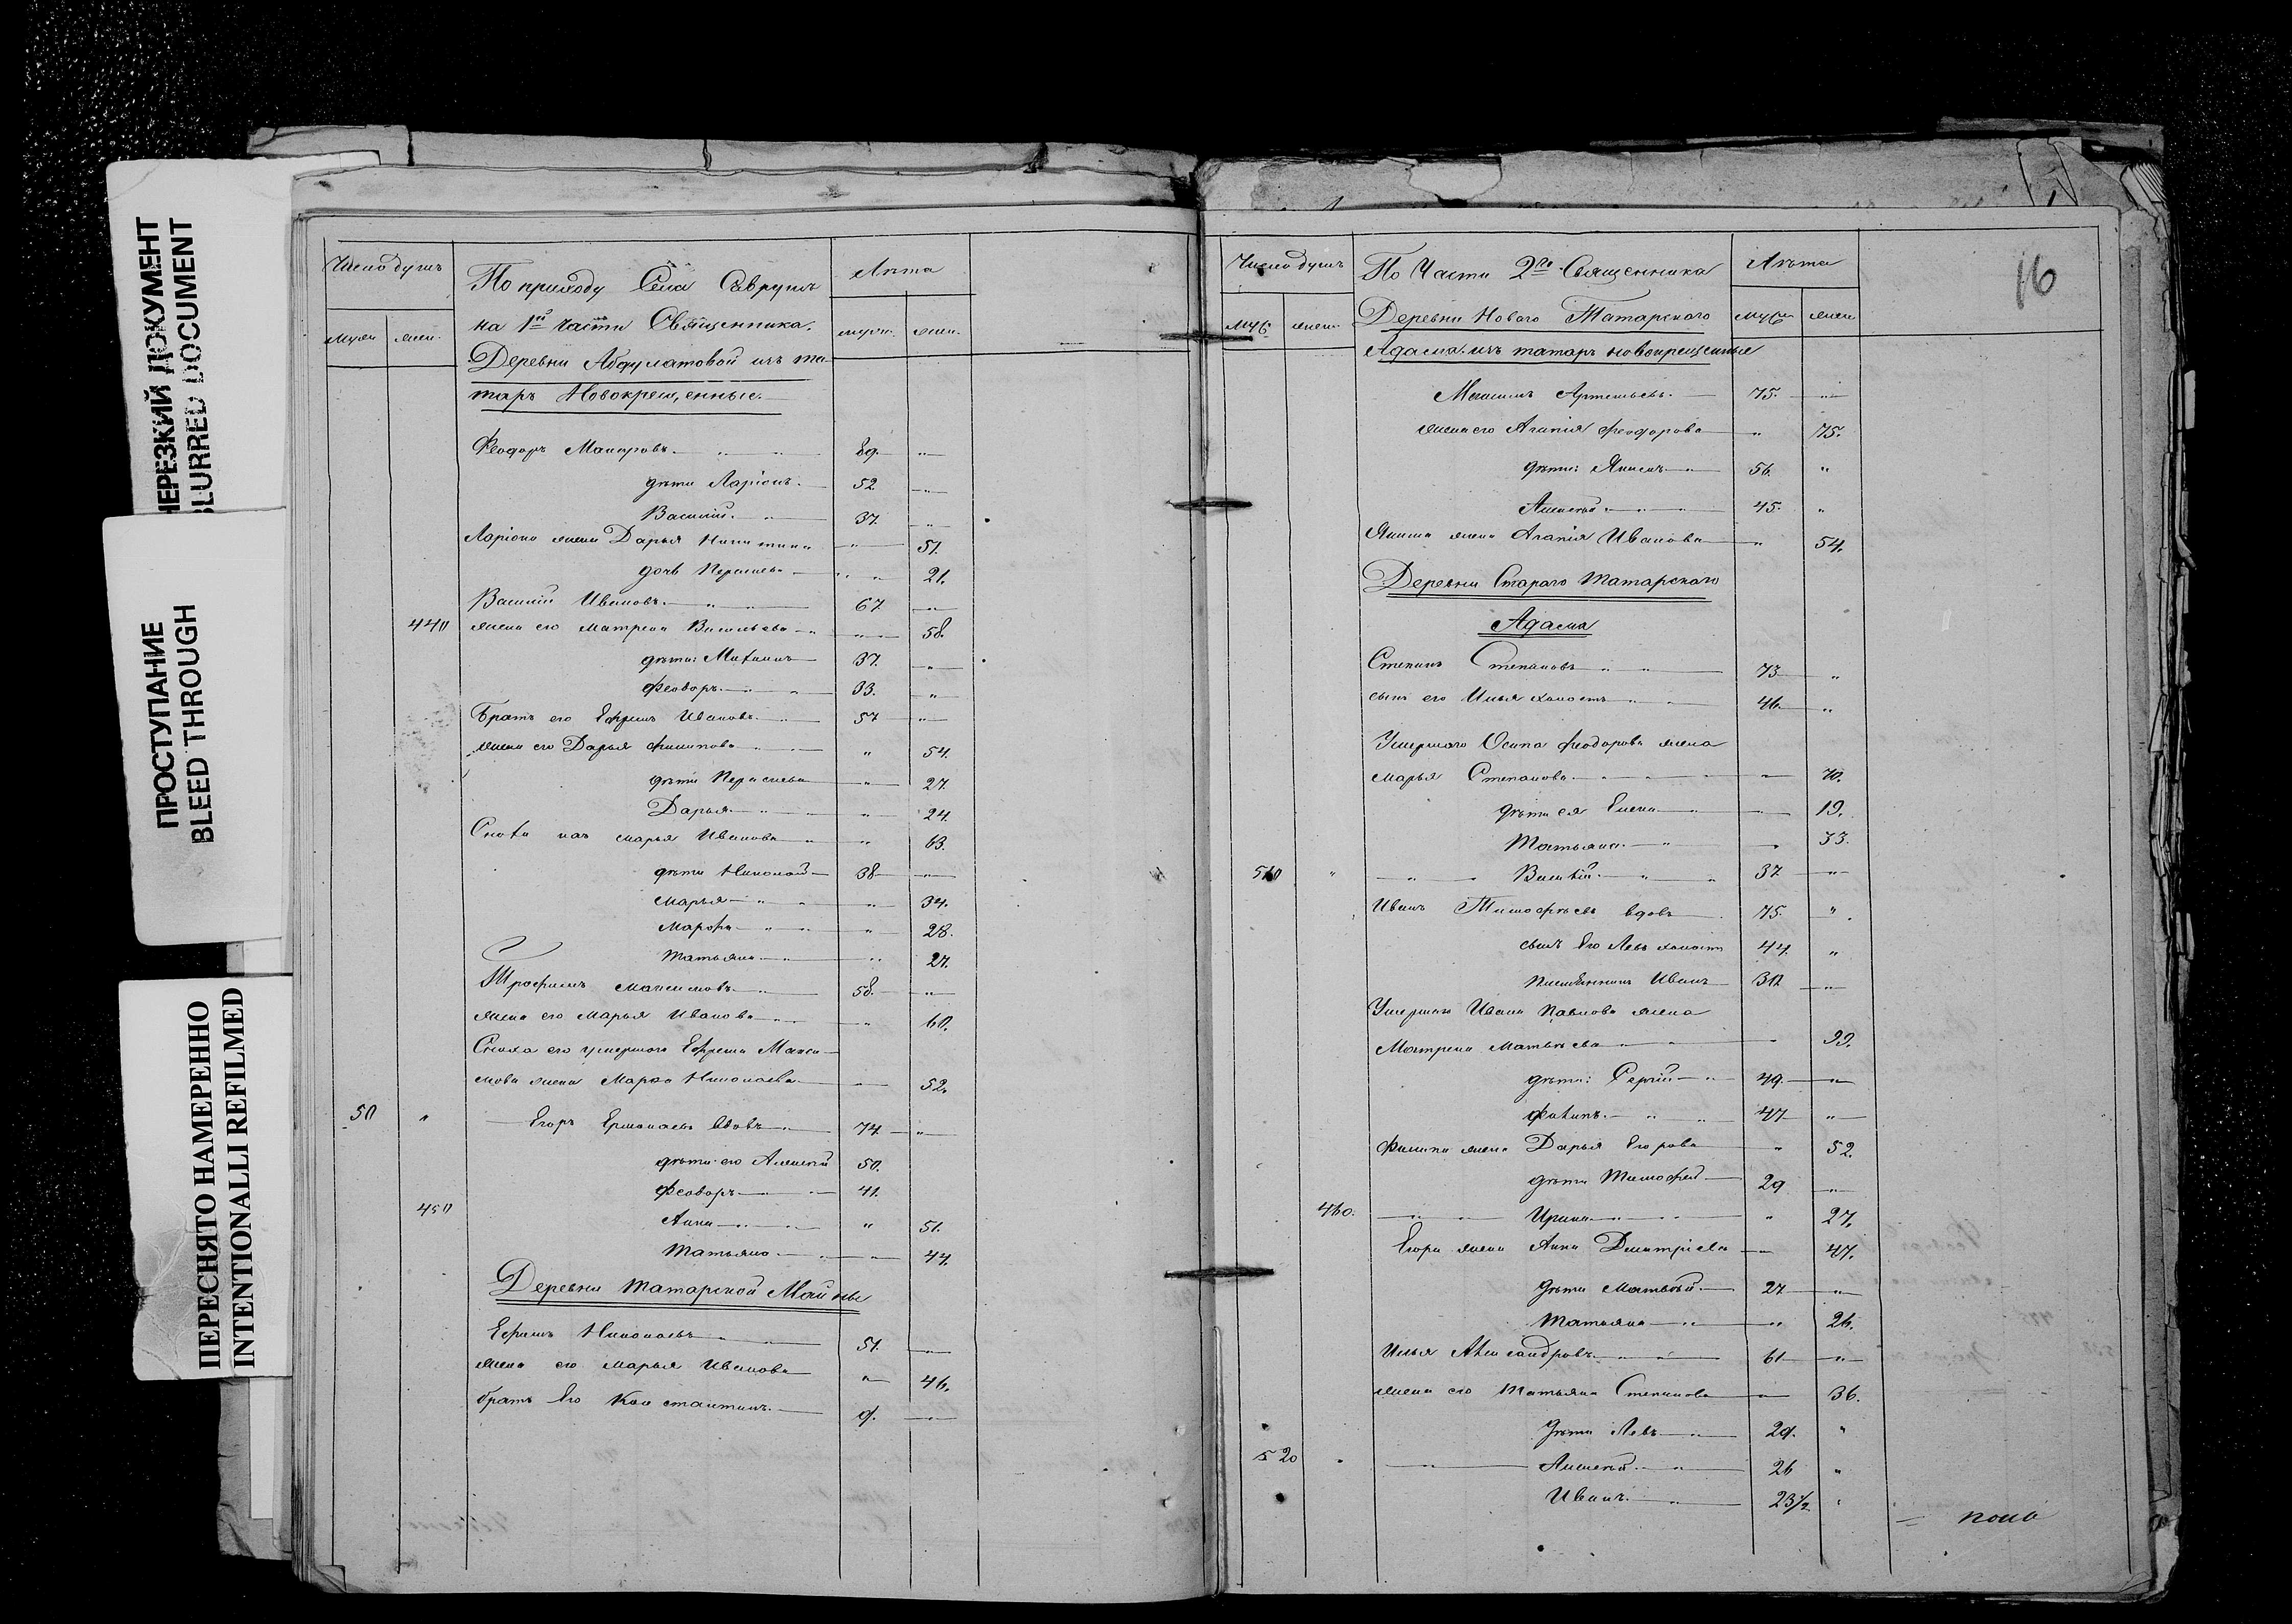 НЕРЕЗКИЙ ДОКУМЕНТ
BLURRED DOCUMENT
ПРОСТУПАНИЕ
BLEED THROUGH
ПЕРЕСНЯТО НАМЕРЕННО
INTENTIONALLI REFILMED
Число душъ
По приходу Села Саврушъ
Лѣта
на 1й части Священника.
муж. жен.
Деревни Абдулатовой изъ та-
таръ Новокрещенные.
Феодоръ 89. "
дѣти Ларіонъ. 52 "
Василий. 37. "
Ларіона жена Дарья Никитина " 51.
дочь " 21.
Василий Ивановъ. 67. "
440 жена его Матрена Васильева " 58.
дѣти: Михаилъ 37. "
Феодоръ. 33. "
Братъ его Ефремъ Ивановъ. 57 "
жена его Дарья Филипова " 54.
дѣти " 27.
Дарья " 24.
Марья Иванова " 63.
дѣти Николай 38 "
Марья " 34.
Марѳа " 28.
Татьяна " 27.
Трофимъ Максимовъ. 58. "
жена его Марья Иванова " 60.
его умершаго Ефрема Макси-
мова жена Марѳа Николаева " 52.
50 " Егоръ Ермолаевъ вдовъ 74 "
дѣти его Алексей 50.
Феодоръ 41.
450 Анна " 51.
Татьяна " 44.
Деревни Татарской Майны
Ефимъ Николаевъ 51. "
жена его Марья Иванова " 46.
братъ Его Константинъ. 9. "
16
Число душъ
По Части 2го Священника
Лѣта
муж. жен.
Деревни Новаго Татарскаго
Адама изъ татаръ новокрещенные
Максимъ Артемьевъ. 75. "
жена его Агапія Феодорова " 75.
дѣти: Якимъ 56. "
Алексей 45. "
Якима жена Агапія Иванова " 54.
Деревни Стараго Татарскаго
Адама
Степанъ Степановъ 73 "
сынъ его Илья холостъ 46. "
Умершаго Осипа Феодорова жена
Марья Степанова " 70.
дѣти ея Елена " 19.
Татьяна " 33.
510 " Василій 37 "
Иванъ Тимофѣевъ вдовъ 75. "
сынъ Его Левъ холостъ 44. "
племянникъ Иванъ "
Умершаго Ивана Павлова жена
Матрена Матвѣева " 99.
дѣти: Сергій 49. "
Филипъ 47 "
Филипа жена Дарья Егорова " 52.
дѣти Тимофей 29 "
460. Ирина " 27.
Егора жена Анна Дмитріева " 47.
дѣти Матвѣй. 27 "
Татьяна " 26.
Илья Александровъ 61 "
жена его Татьяна Степанова " 36.
дѣти Левъ 29. "
520 Алексей 26 "
Иванъ. 23½ "